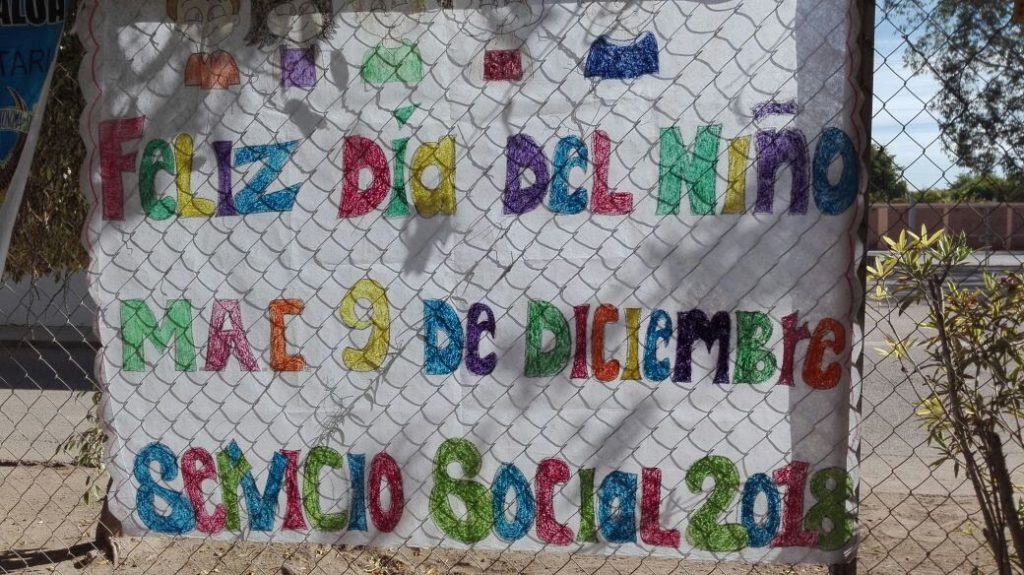 Feliz Día Del Niño
Mac 9 De Diciembre
Servicio Social 2018